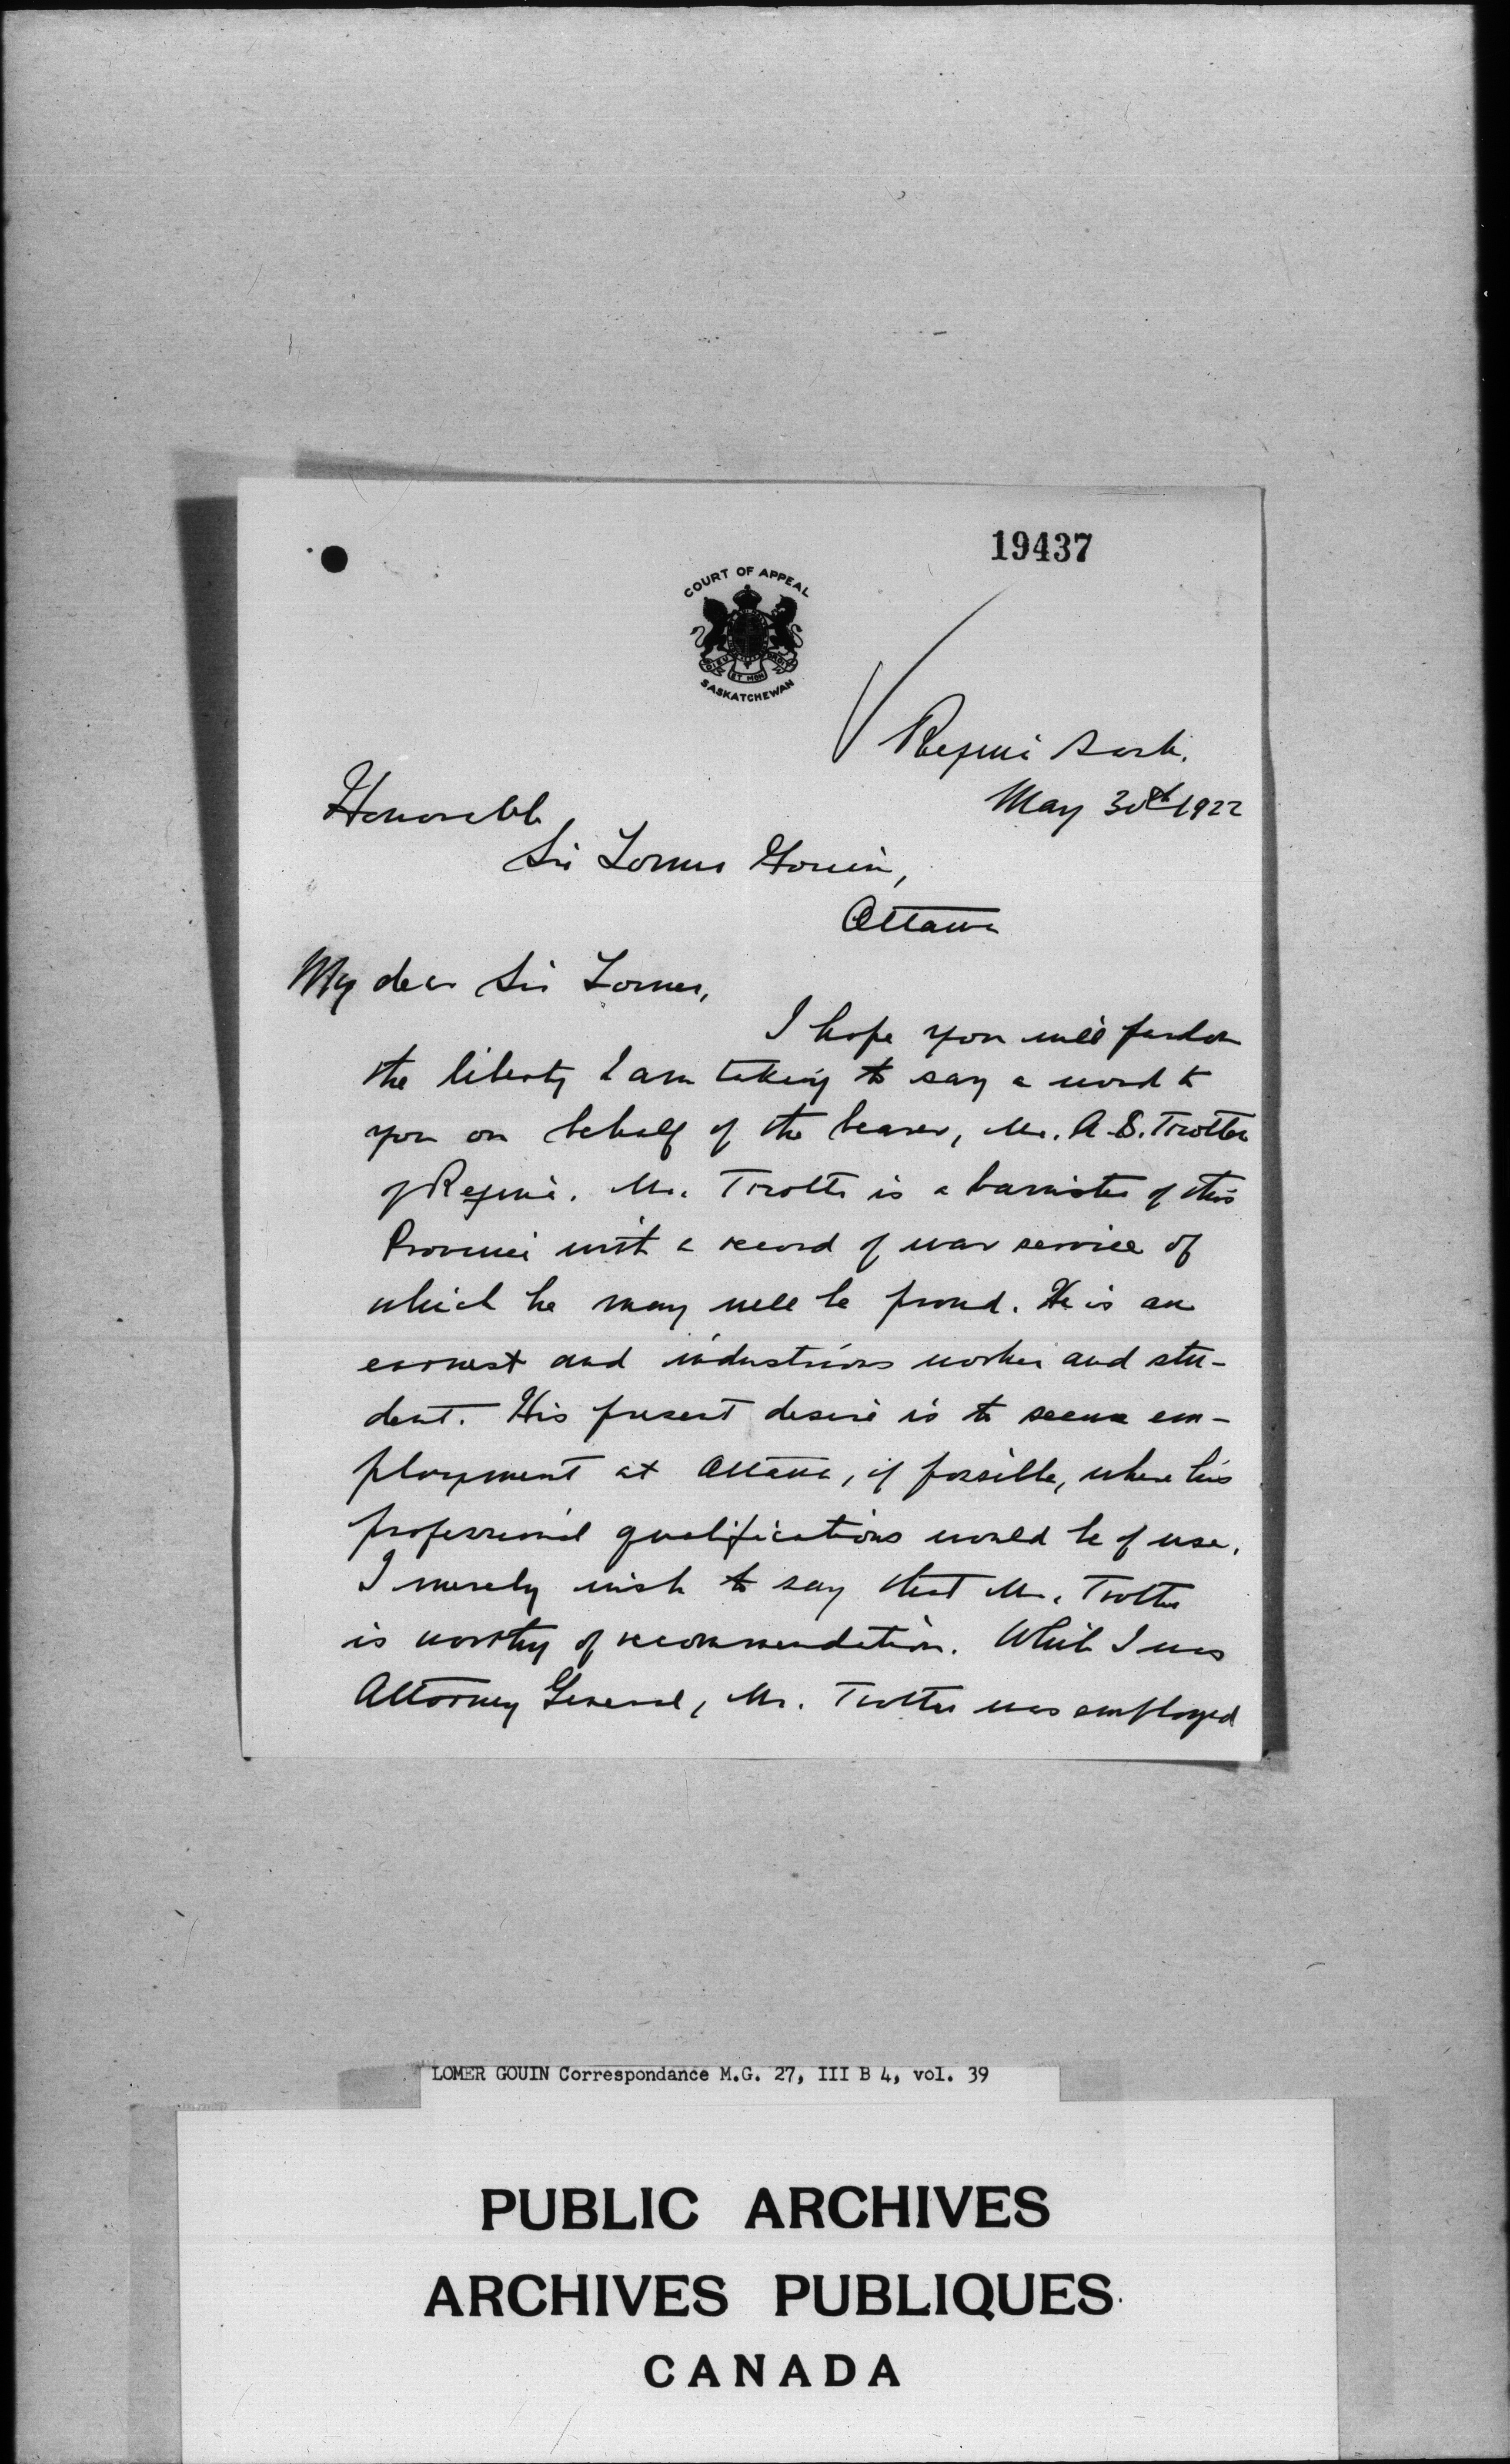 19437
COURT OF APPEAL
DIEU ET MON DROIT
SASKATCHEWAN
Regina Sask.
May 30th 1922
Honorable
Sir Lomer Gouin,
Ottawa
My dear Sir Lomer,
I hope you will pardon
the liberty I am taking to say a word to
you on behalf of the bearer, Mr. A. S. Trotter
of Regina. Mr. Trotter is a barrister of this
Province with a record of war service of
which he may well be proud. He is an
earnest and industrious worker and stu-
dent. His present desire is to secure em-
ployment at Ottawa, if possible, where his
professional qualifications would be of use.
I merely wish to say that Mr. Trotter
is worthy of recommendation. While I was
Attorney General, Mr. Trotter was employed
LOMER GOUIN Correspondance M.G. 27, III B 4, vol. 39
PUBLIC ARCHIVES
ARCHIVES PUBLIQUES
CANADA